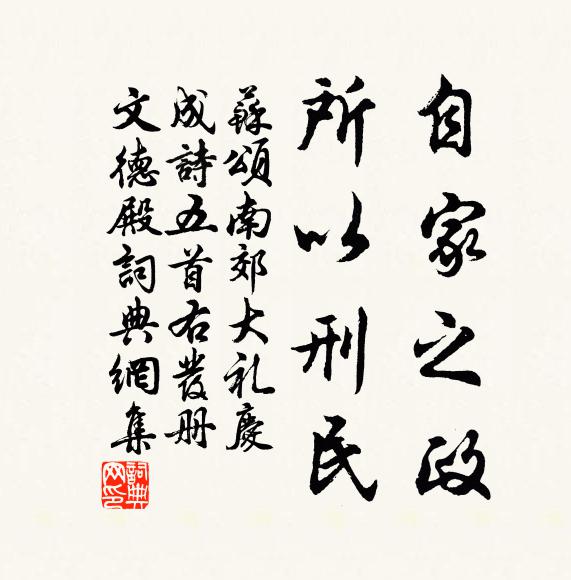 自家之政
所以刑民
蘇頌南郊大礼慶
成詩五首右發册
文德殿詞典網集
詞典
网印